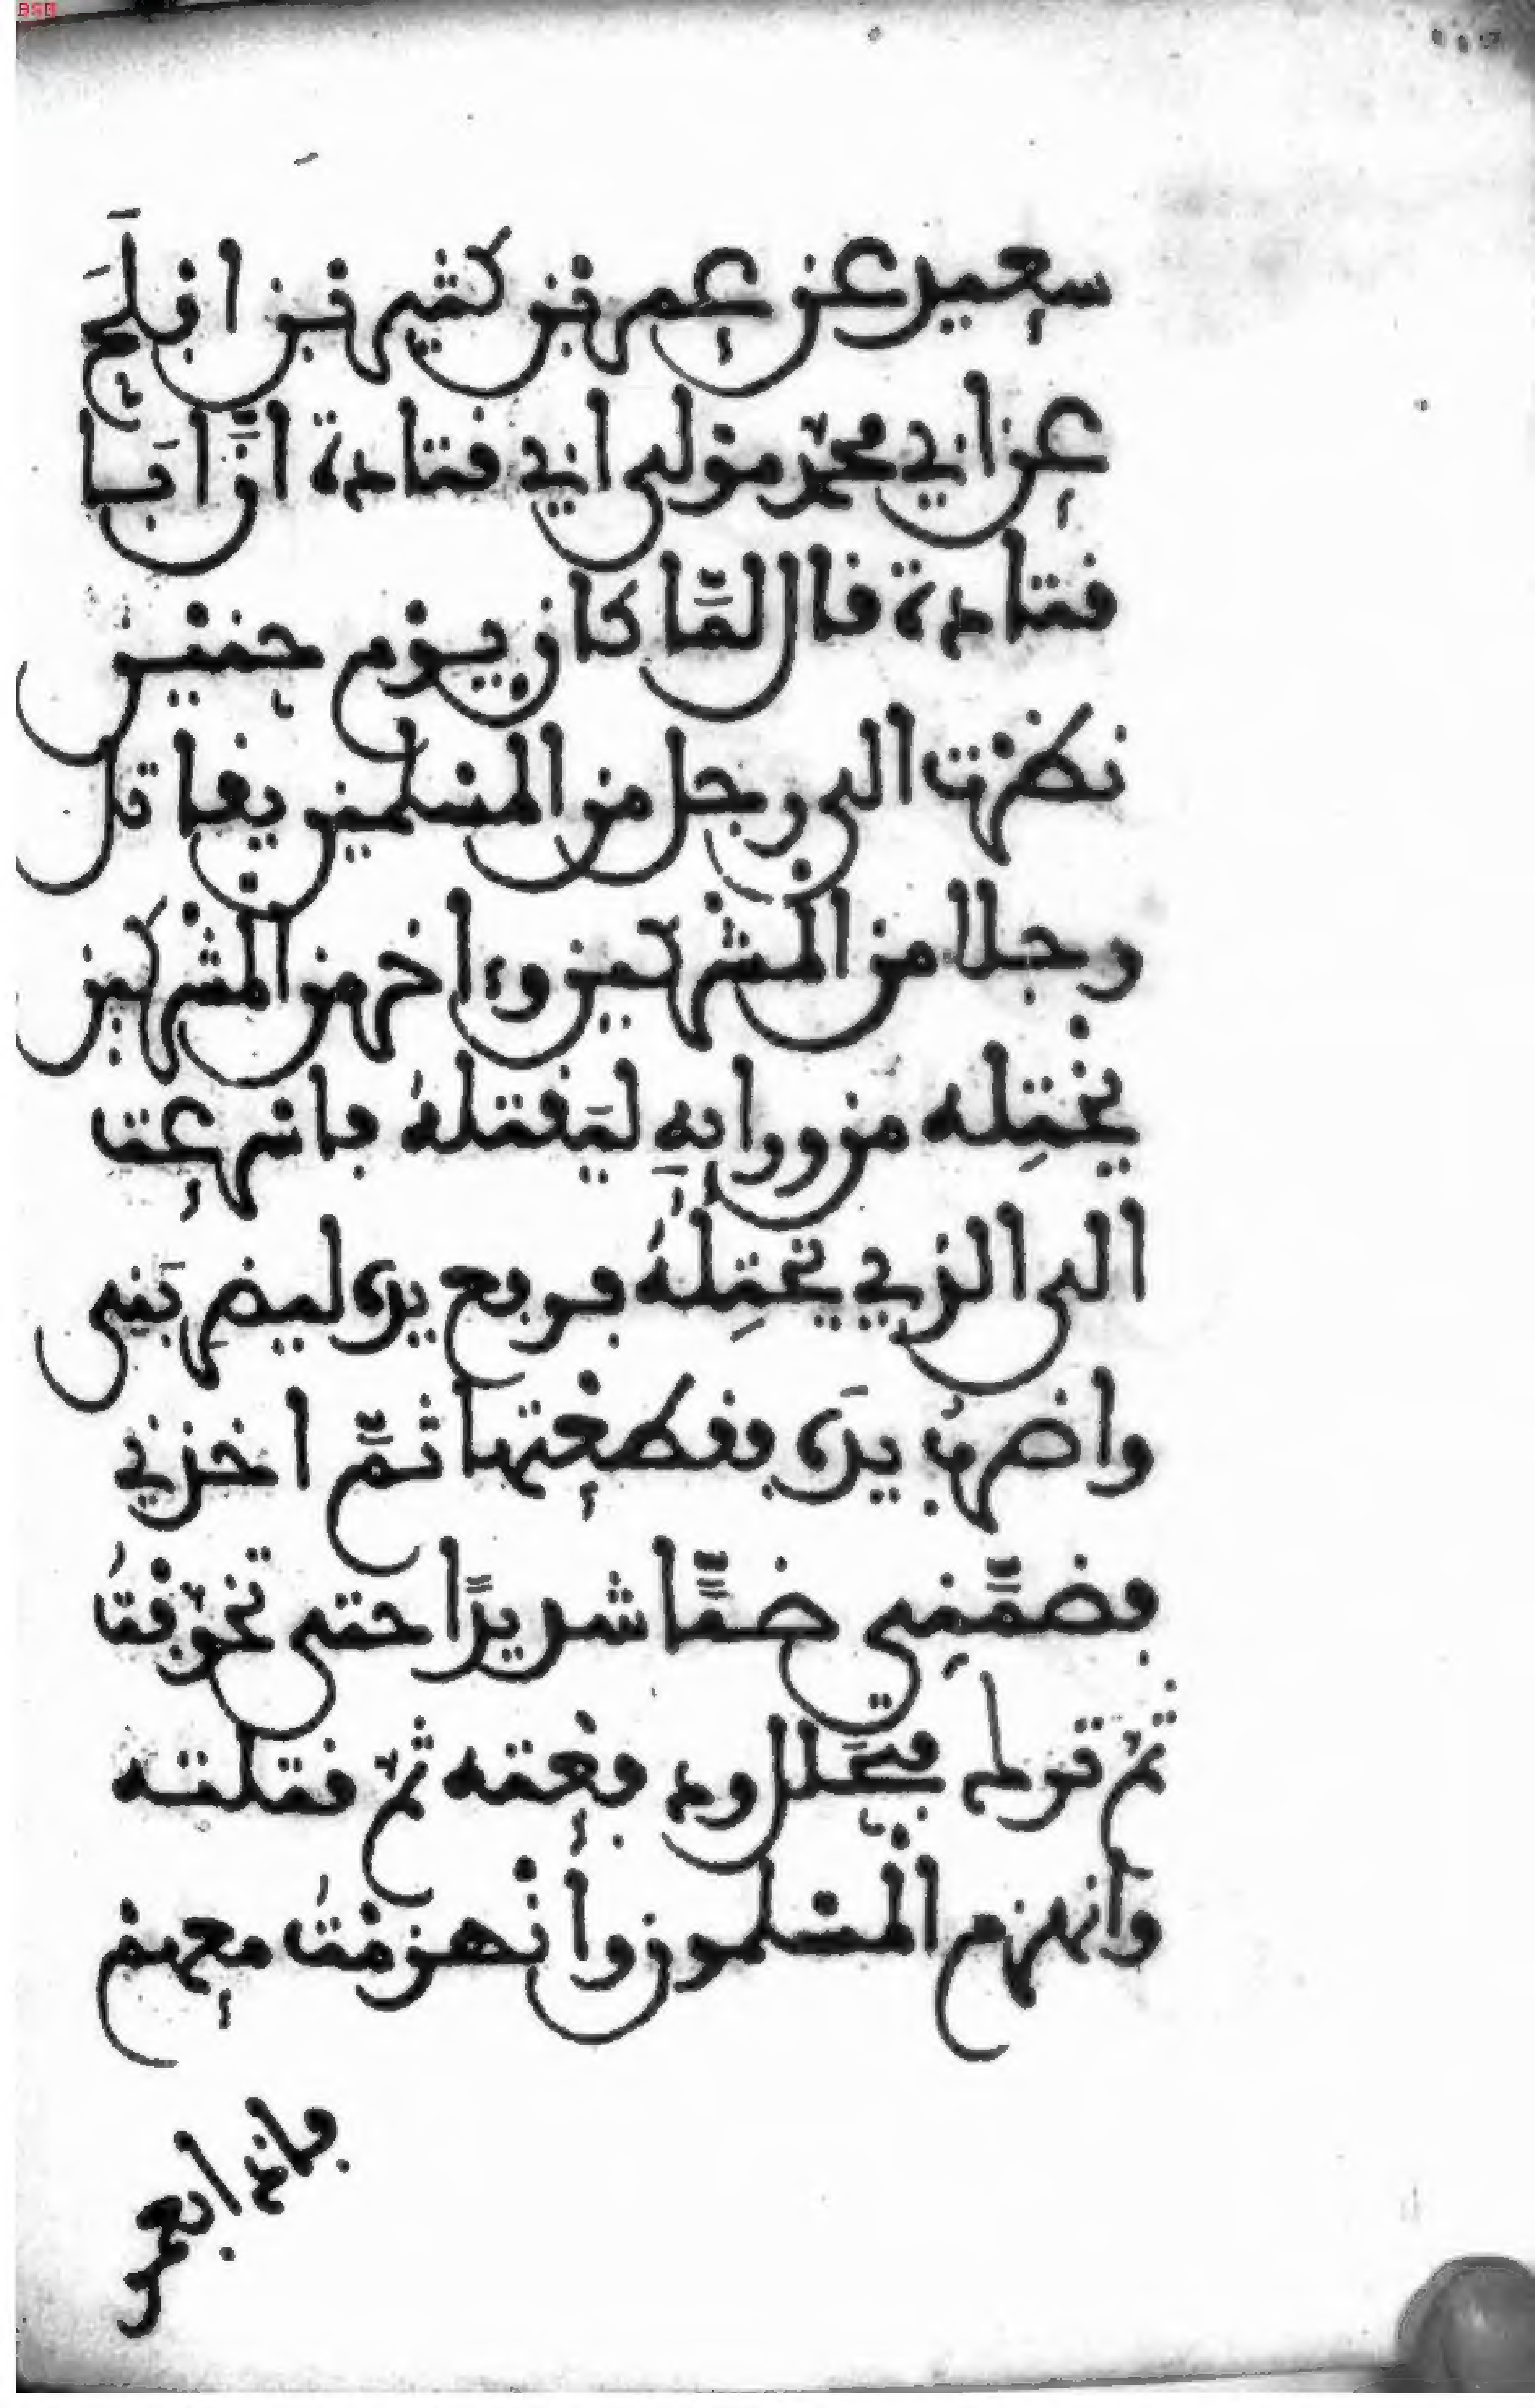 سعيد عن عمر بن كثير بن افلح
عن ابي محمد مولى ابي قتادة أنّ ابا
قتادة قال لمّا كان يوم حنين
نظرت الى رجل من المسلمين يقاتل
رجلا من المشركين وءاخر من المشركين
يختِله من ورايهِ ليَقتلهُ فاسرعت
الى الذي يختِلهُ فرفع يده ليضربَني
واضربُ يدَه فقطعْتها ثمّ اخذني
فضمَّنِي ضمًّا شديدًا حتى تخوفْتُ
ثم ترك فتحَلل ودفعته ثم قتلته
وانهزم المسلمون وانْهزمْتُ معهم
فاذا بعمر
BSB